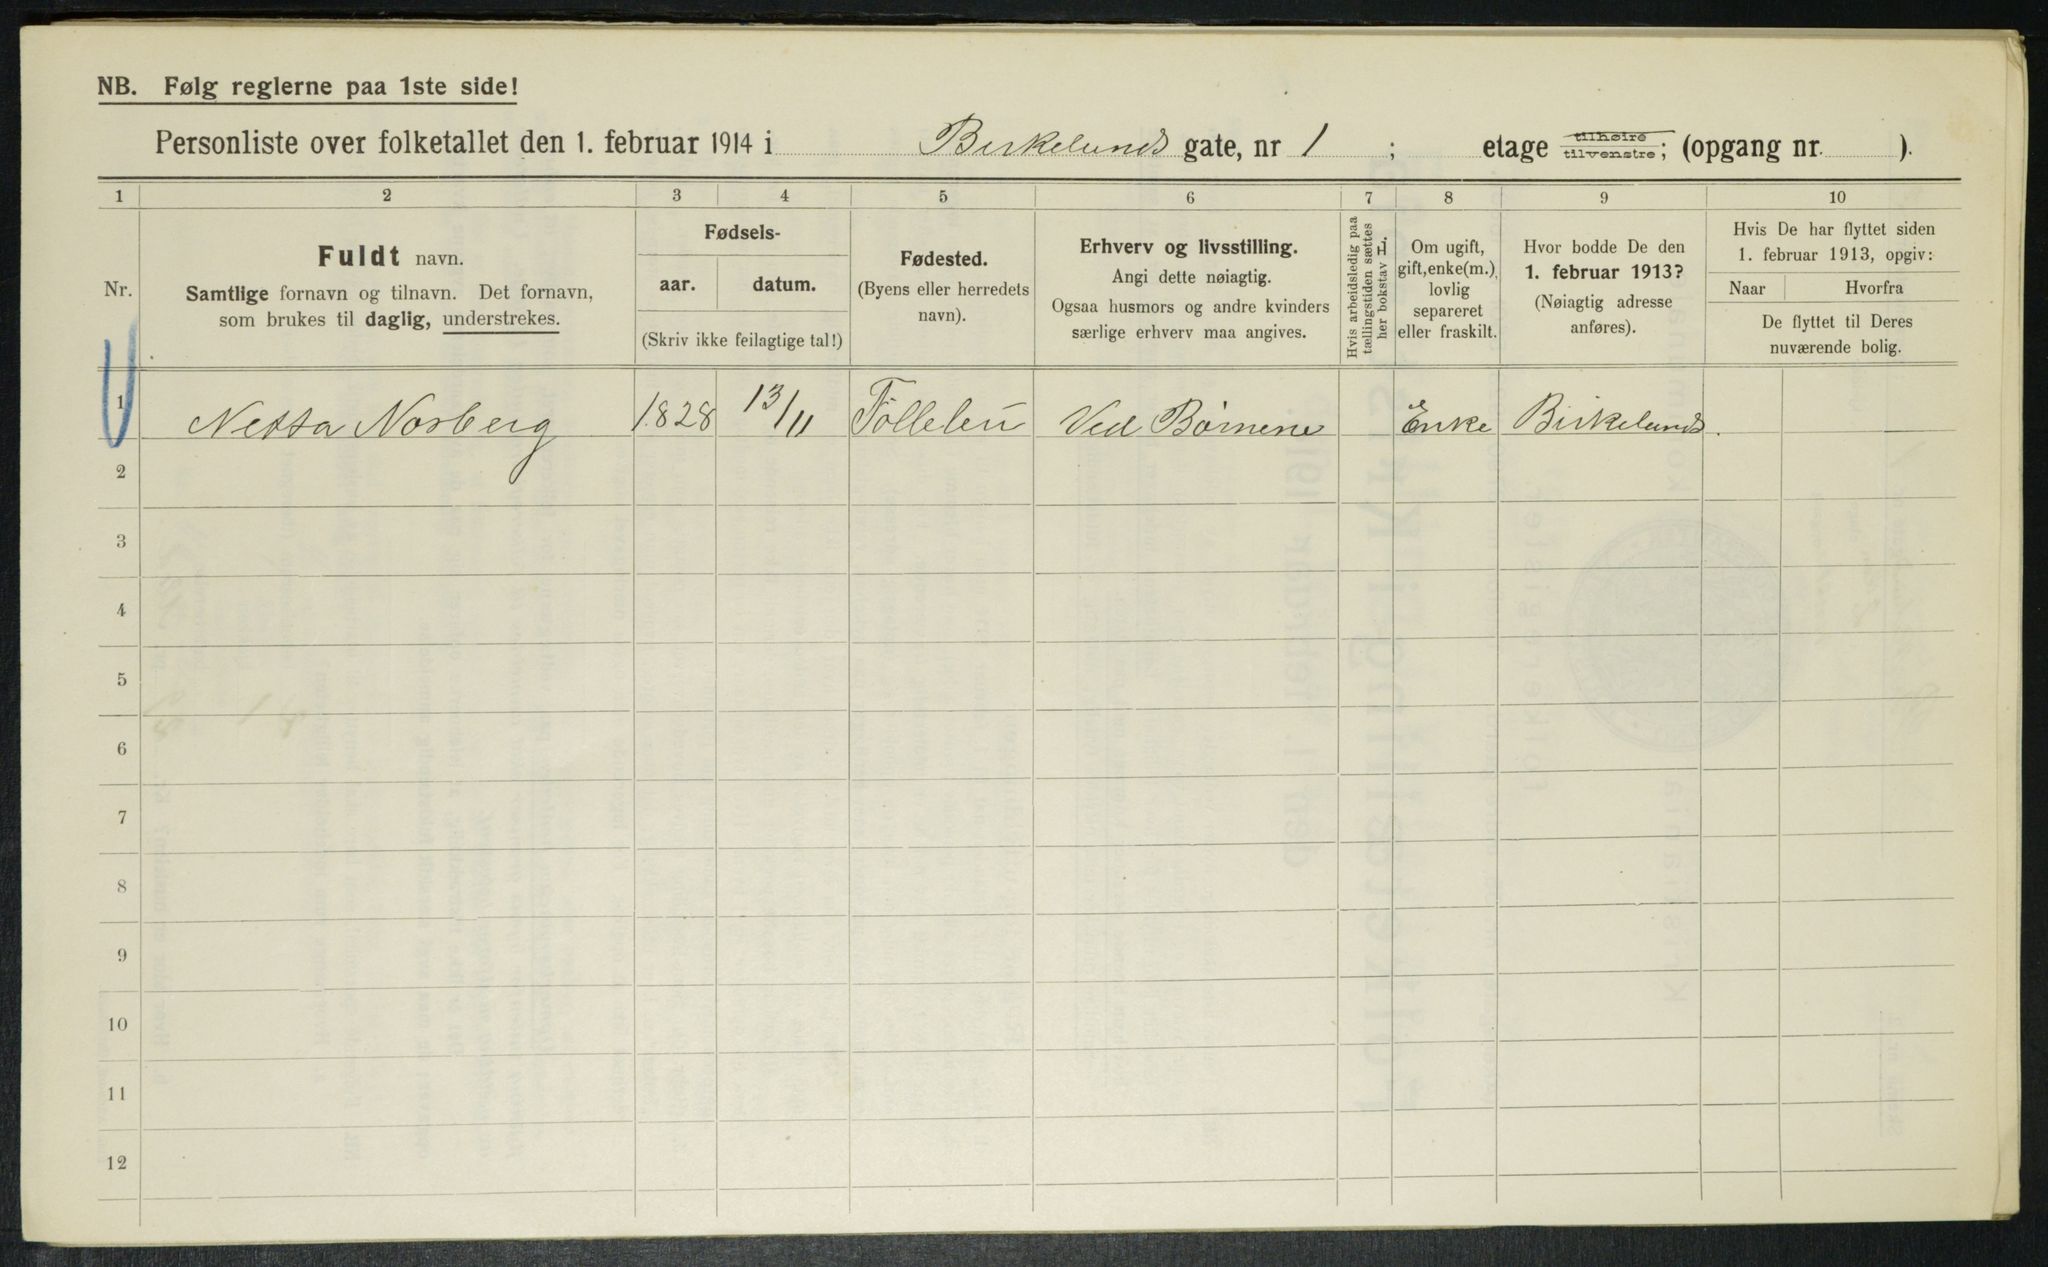 NB. Følg reglerne paa 1ste side!
Personliste over folketallet den 1. februar 1914 i Birkelunds gate, nr 1 ; etage tilhøire tilvenstre; (opgang nr. ).
1 2 3 4 5 6 7 8 9 10
Nr.
Fuldt navn.
Samtlige fornavn og tilnavn. Det fornavn,
som brukes til daglig, understrekes.
Fødsels-
aar. datum.
(Skriv ikke feilagtige tal!)
Fødested.
(Byens eller herredets
navn).
Erhverv og livsstilling.
Angi dette nøiagtig.
Ogsaa husmors og andre kvinders
særlige erhverv maa angives.
Hvis arbeidsledig paa
tællingstiden sættes
her bokstav L.
Om ugift,
gift, enke(m.),
lovlig
separeret
eller fraskilt.
Hvor bodde De den
1. februar 1913?
(Nøiagtig adresse
anføres).
Hvis De har flyttet siden
1. februar 1913, opgiv:
Naar Hvorfra
De flyttet til Deres
nuværende bolig.
1 Netta Norberg 1828 13/11 Ved Børnene Enke Birkelunds.
2
3
4
5
6
7
8
9
10
11
12